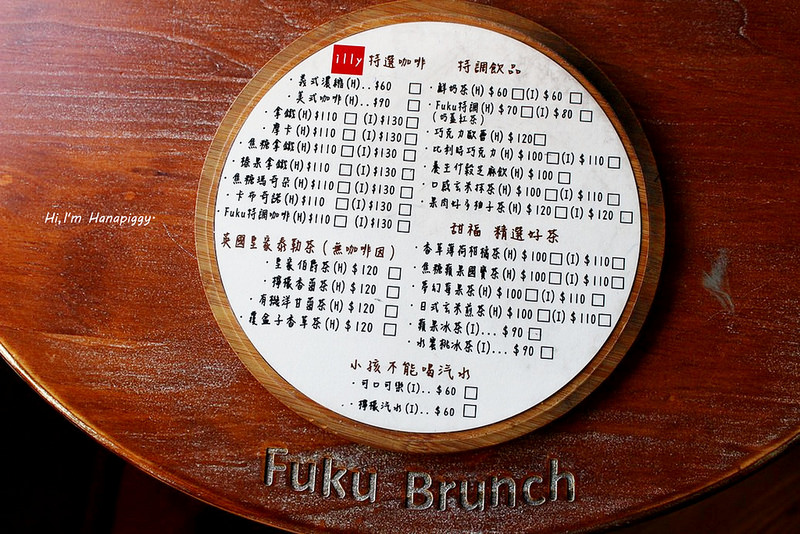 illy 特選咖啡
·義式濃縮(H)..$60 □
·美式咖啡(H)..$90 □
·拿鐵(H)$110 □ (I)$130 □
·摩卡(H)$110 □ (I)$130 □
·焦糖拿鐵(H)$110 □ (I)$130 □
·榛果拿鐵(H)$110 □ (I)$130 □
·焦糖瑪奇朵(H)$110 □ (I)$130 □
·卡布奇諾(H)$110 □ (I)$130 □
·Fuku特調咖啡(H)$110 □ (I)$130 □
英國皇家泰勒茶(無咖啡因)
·皇家伯爵茶(H) $120 □
·檸檬杏菌茶(H) $120 □
·有機洋甘菊茶(H) $120 □
·覆盆子香草茶(H) $120 □
特調飲品
·鮮奶茶(H) $60 □ (I) $60 □
·Fuku特調(H) $70 □ (I) $80 □
(奶蓋紅茶)
·巧克力歐蕾(H) $120 □
·比利時巧克力(H) $100 □ (I) $110 □
·養生竹穀芝麻飲(H) $100 □
·口感玄米抹茶(H) $100 □ (I) $110 □
·果肉好多柚子茶(H) $120 □ (I) $120 □
甜福 精選好茶
·香草薄荷柑橘茶(H) $100 □ (I) $110 □
·焦糖蘋果國寶茶(H) $100 □ (I) $110 □
·夢幻莓果茶(H) $100 □ (I) $110 □
·日式玄米煎茶(H) $100 □ (I) $110 □
·蘋果冰茶(I)... $90 □
·水蜜桃冰茶(I)... $90 □
小孩不能喝汽水
·可口可樂(I).. $60 □
·檸檬汽水(I).. $60 □
Hi,I'm Hanapiggy
Fuku Brunch